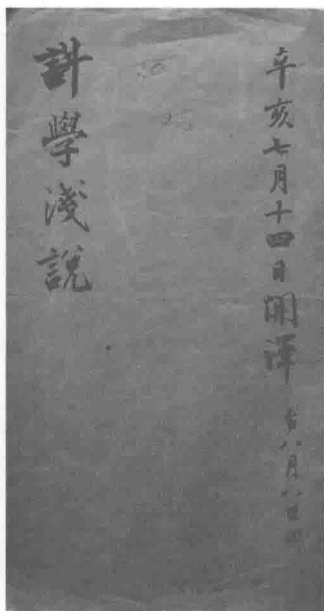 辛亥七月十四日開譯 八月
計學淺說